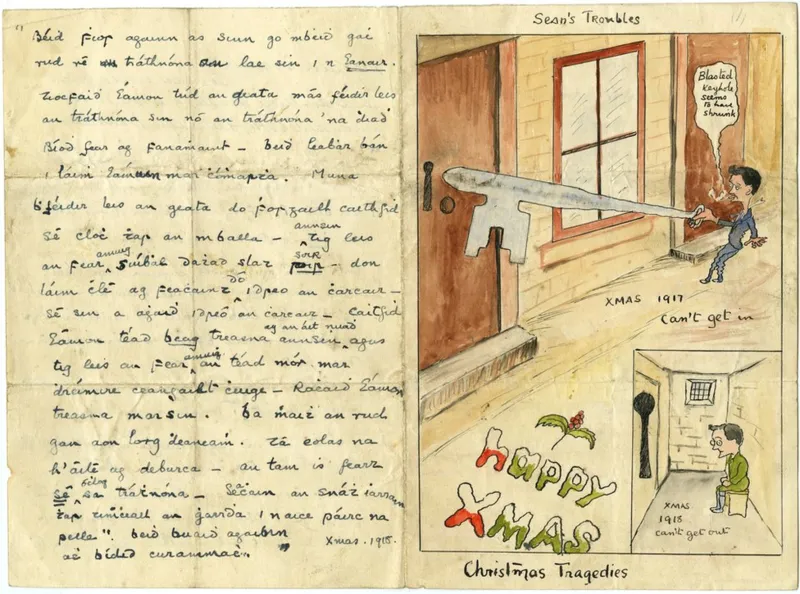 Sean's Troubles
" Béid fios againn as go mbeid gac
rud ré tráthnóna lae sin i n Eanair.
Tiocfaid Éamon an geata más féidir leis
an tráthnóna sin nó an tráthnóna 'na diad
Biod fear ag fanamaint – Beid leabar bán
i láim Éamuin mar comarta. Muna
féidir leis an geata do fosgailt caitfid
sé cloc tar an mballa – annsin tig leis
an fear amuig siúbal slat soir – don
láim clé ag feacaint dó idreo an carcair –
sé sin a agaid idreo an carcair – Caitfid
Éamon téad beag treasna annsin, agus
tig leis an fear amuig an téad mór mar
dréimire ceangailt – Racaid Éamon
treasna mar sin. ba mait an rud
gan aon lorg déanam. tá eolas na
h'áite ag deburca – an tam is fearr
sé sa trátnóna – Seacain an snát iarrainn
tar timceall an garrda i naice páirc na
peile". beid buaid againn
ac bided curammac.. Xmas. 1918.
Blasted
Keyhole
seems
to have
shrunk
XMAS 1917
Can't get in
HAPPY
XMAS
XMAS
1918
can't get out
Christmas Tragedies